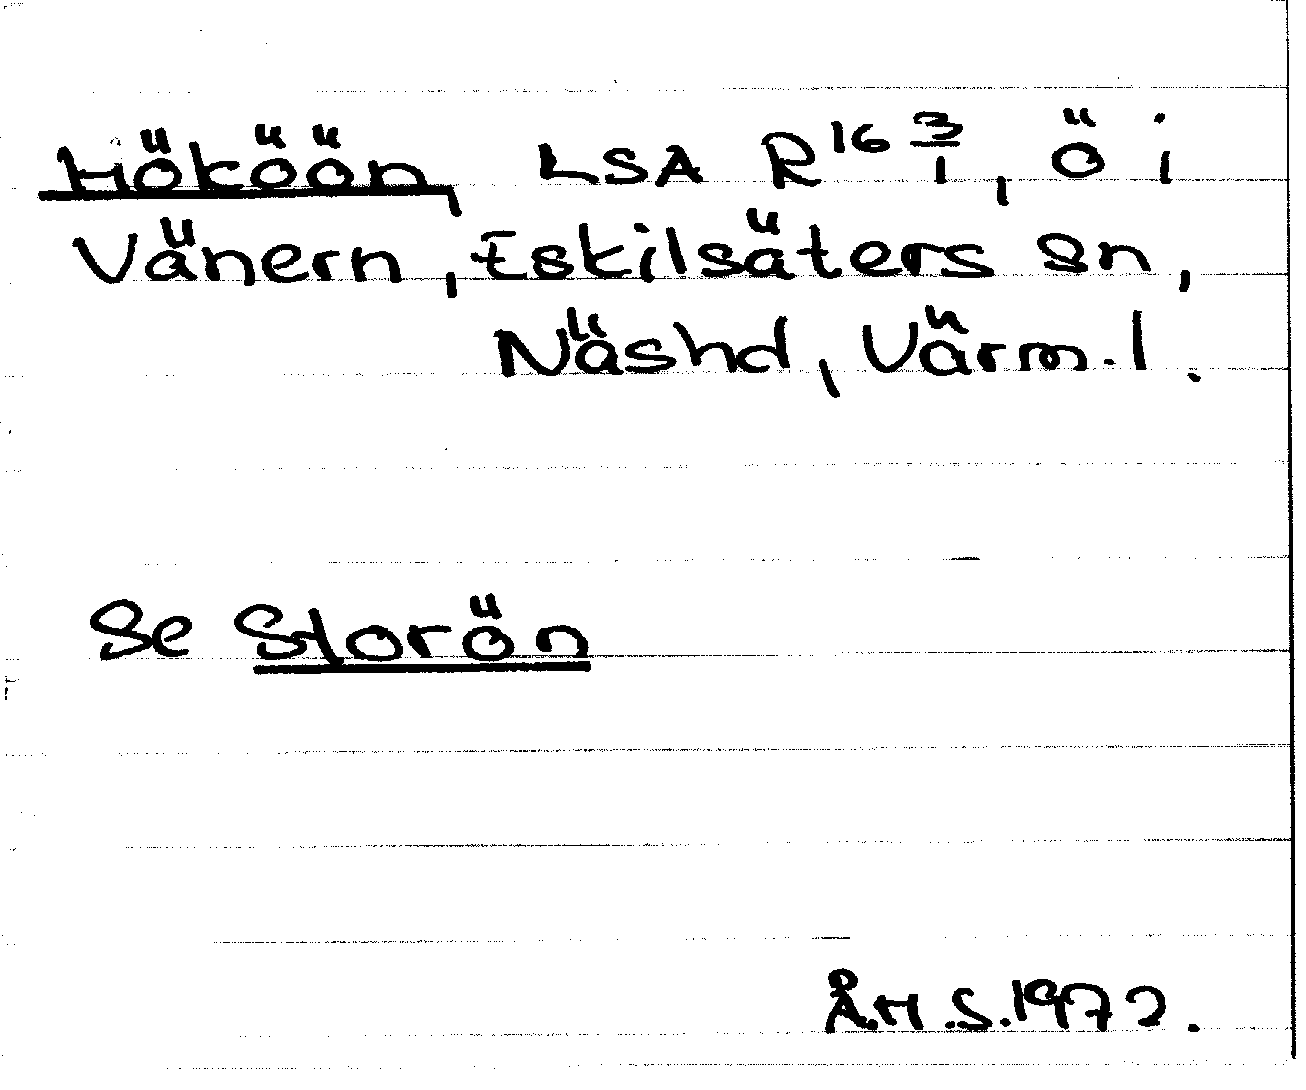 Hököön, LSA R16 3/1, ö i
Vänern, Eskilsäters sn,
Näshd, Värm.l.
Se Storön
Å.H.S.1972.